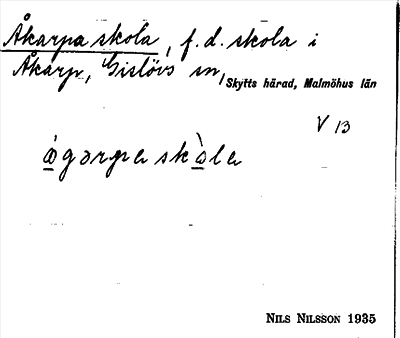 Åkarpa skola, f.d. skola i
Åkarp, Gislövs sn, Skytts härad, Malmöhus län
V 13
ágərpa skòla
NILS NILSSON 1935